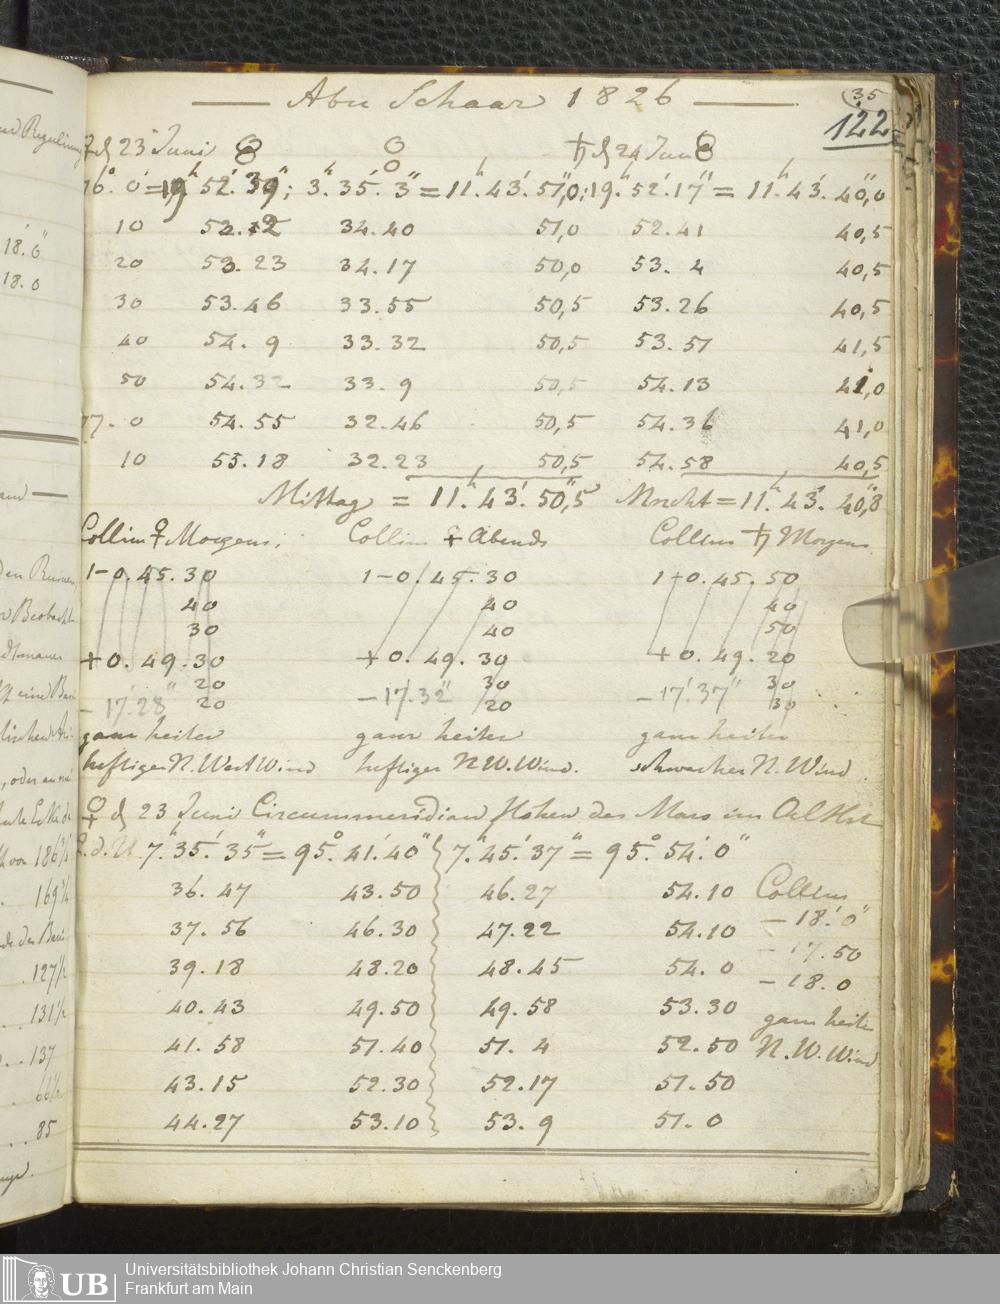 35
122
Abu Schaar 1826
♀ d 23 Juni ♄ d 24 Juni
76°. 0' = 19h 52'. 39"; 3h. 35'. 3" = 11h. 43'. 51",0; 19h. 52'. 17" = 11h. 43'. 40",0
10 53. 2 34. 40 51,0 52. 41 40,5
20 53. 23 34. 17 50,0 53. 4 40,5
30 53. 46 33. 55 50,5 53. 26 40,5
40 54. 9 33. 32 50,5 53. 51 41,5
50 54. 32 33. 9 50,5 54. 13 41,0
77. 0 54. 55 32. 46 50,5 54. 36 41,0
10 55. 18 32. 23 50,5 54. 58 40,5
Mittag = 11h. 43'. 50",5 Mncht = 11h. 43'. 40",8
Collim ♀ Morgens; Collim ♀ Abends Collim ♄ Morgens
1 - 0. 45. 30 1 - 0. 45. 30 1 + 0. 45. 50
40 40 40
30 40 50
+ 0. 49. 30 + 0. 49. 30 + 0. 49. 20
20 30 30
20 20 30
- 17'. 28" - 17'. 32" - 17'. 37"
ganz heiter ganz heiter ganz heiter
heftiger N. West Wind heftiger N W. Wind. schwacher N. Wind
♀ d 23 Juni Circummeridian Höhen des Mars im
♀. d. U. 7h. 35'. 35" = 95°. 41'. 40" 7h. 45'. 37" = 95°. 54'. 0"
36. 47 43. 50 46. 27 54. 10 Collim
37. 56 46. 30 47. 22 54. 10 - 18'. 0"
39. 18 48. 20 48. 45 54. 0 - 17. 50
- 18. 0
40. 43 49. 50 49. 58 53. 30 ganz heiter
41. 58 51. 40 51. 4 52. 50 N. W. Wind
43. 15 52. 30 52. 17 51. 50
44. 27 53. 10 53. 9 51. 0
18'. 0"
18. 0
127 1/2
131 1/2
137
85
UB
Universitätsbibliothek Johann Christian Senckenberg
Frankfurt am Main